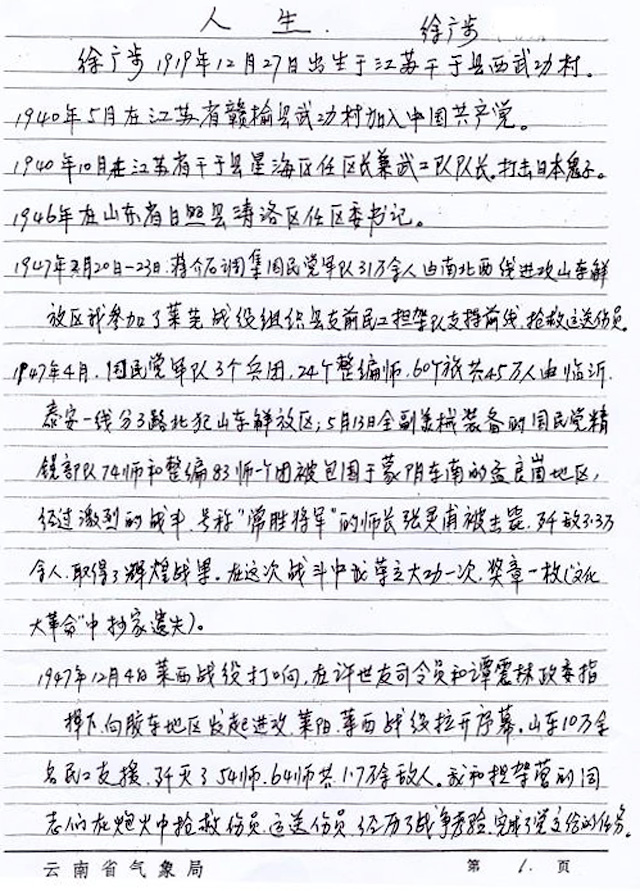 人 生
徐广步
徐广步1919年12月27日出生于江苏干于县西武功村。
1940年5月在江苏省赣榆县武功村加入中国共产党。
1940年10月在江苏省干于县星海区任区长兼武工队队长。打击日本鬼子。
1946年在山东省日照县涛洛区任区委书记。
1947年2月20日—23日.蒋介石调集国民党军队31万余人由南北西线进攻山东解
放区我参加了莱芜战役组织县支前民工担架队支持前线.抢救运送伤员.
1947年4月.国民党军队3个兵团.24个整编师.60个旅共45万人由临沂.
泰安一线分3路北犯山东解放区;5月13日全副美械装备的国民党精
锐部队74师和整编83师一个团被包围于蒙阴东南的孟良崮地区,
经过激烈的战斗.号称"常胜将军"的师长张灵甫被击毙.歼敌3.3万
余人.取得了辉煌战果。在这次战斗中我荣立大功一次.奖章一枚("文化
大革命"中抄家遗失)。
1947年12月4日莱西战役打响.在许世友司令员和谭震林政委指
挥下.向胶东地区发起进攻.莱阳.莱西战役拉开序幕。山东10万余
名民工支援.歼灭了54师.64师共1.7万余敌人。我和担架营的同
志们在炮火中抢救伤员.运送伤员.经历了战争考验.完成了党交给的任务。
云南省气象局 第 1. 页